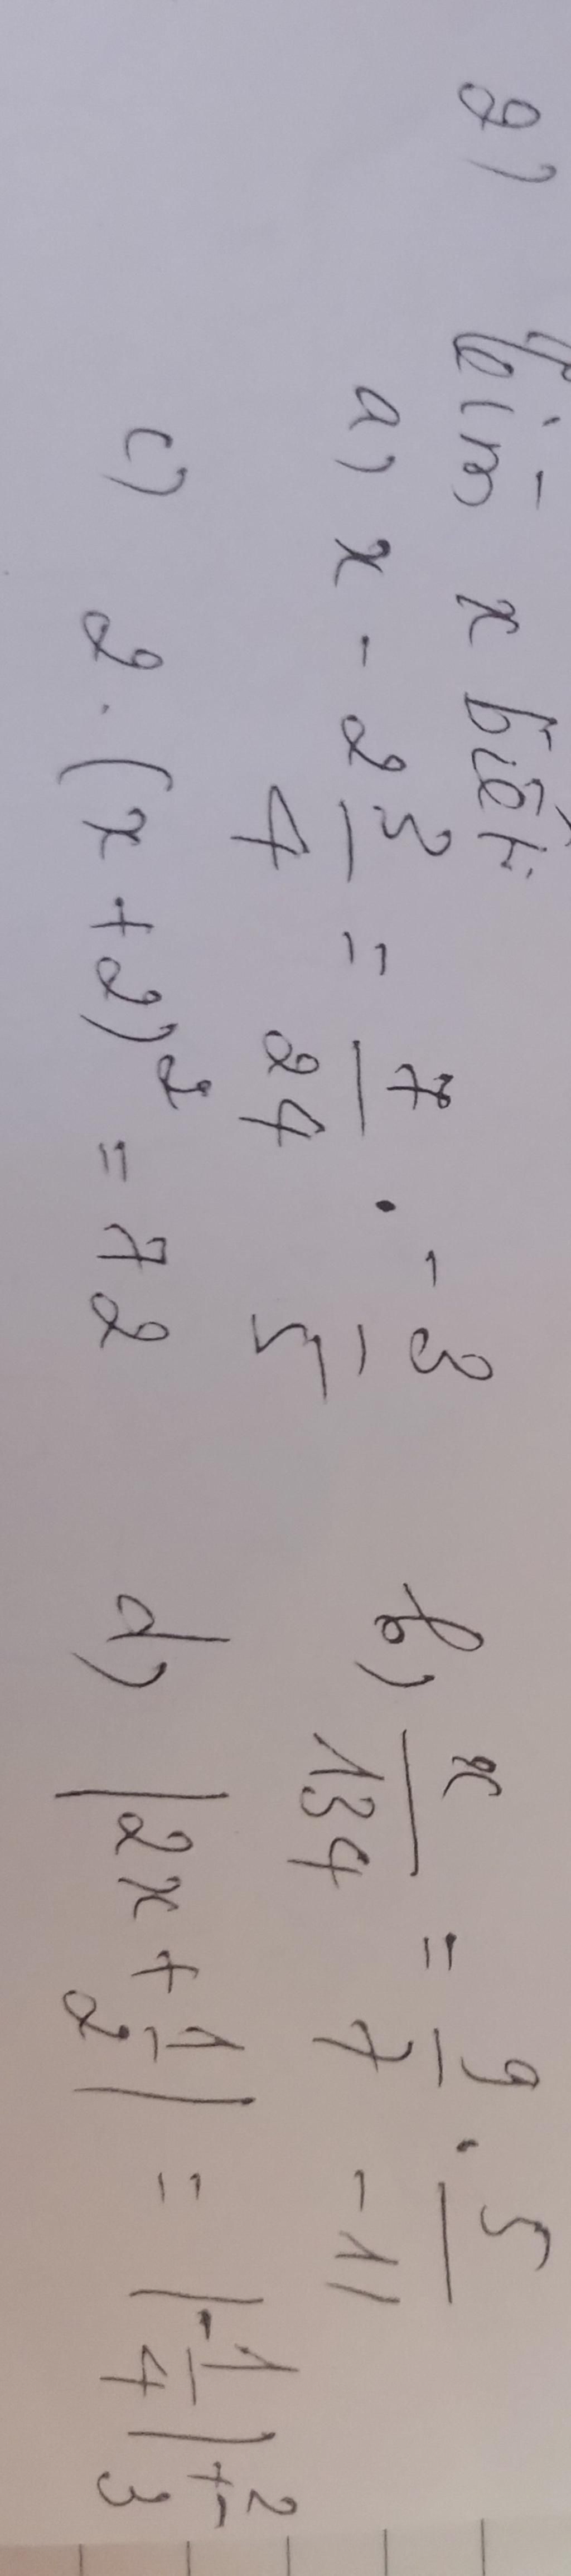 2) Tìm x biết:
a) x - 2 3/4 = 7/24 . -3/5    b) x/134 = 9/7 . 5/-11
c) 2 . (x + 2)² = 72    d) |2x + 1/2| = |-1/4| + 2/3